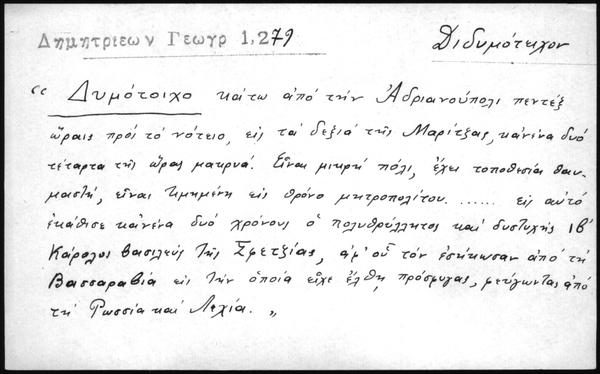 Δημητριεων Γεωγρ 1,279
Διδυμότειχον
“ Δυμότοιχο κάτω από τὴν Ἀδριανούπολι πεντέξ
ὥραις πρὸς τὸ νότειο, εις τὰ δεξιά τῆς Μαρίτζας, κἀνένα δυό
τέταρτα τῆς ὥρας μακρυά. Εἶναι μικρή πόλι, ἔχει τοποθεσία θαυ-
μαστή, εἶναι τιμημένη εις θρόνο μητροπολίτου. ...... εις αυτό
εκάθισε κἀνενα δυό χρόνους ὁ πολυθρύλλητος καὶ δυστυχής ΙΒ'
Κάρολος βασιλεύς τῆς Σφετζίας, ἀφ' οὗ τόν ἐσήκωσαν από τή
Βασσαραβία εις τὴν ὁποία εἶχε ἔλθη πρόσφυγας, φεύγωντας από
τή Ρωσσία και Λεχία. „